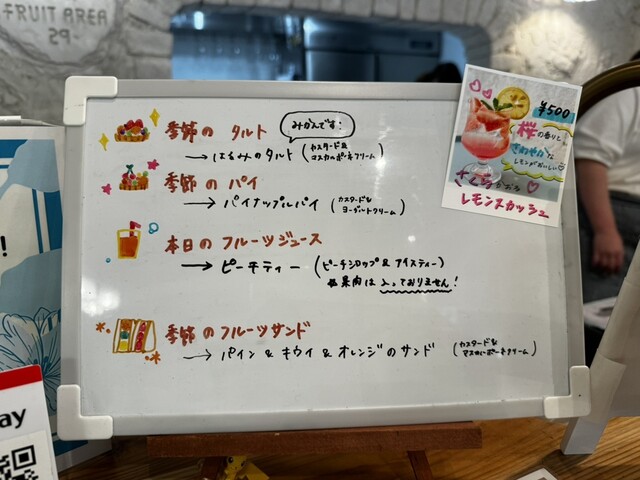 FRUIT AREA
29-
季節の タルト
みかんです!
→ はるみのタルト (カスタード&マスカルポーネクリーム)
季節の パイ
→ パイナップルパイ (カスタード&ヨーグルトクリーム)
本日の フルーツジュース
→ ピーチティー (ピーチシロップ & アイスティー)
※果肉は入っておりません!
季節のフルーツサンド
→ パイン & キウイ & オレンジのサンド (カスタード&マスカルポーネクリーム)
¥500
桜の香りと
さわやかな
レモンがおいしい
さくらかおる
レモンスカッシュ
!
ay